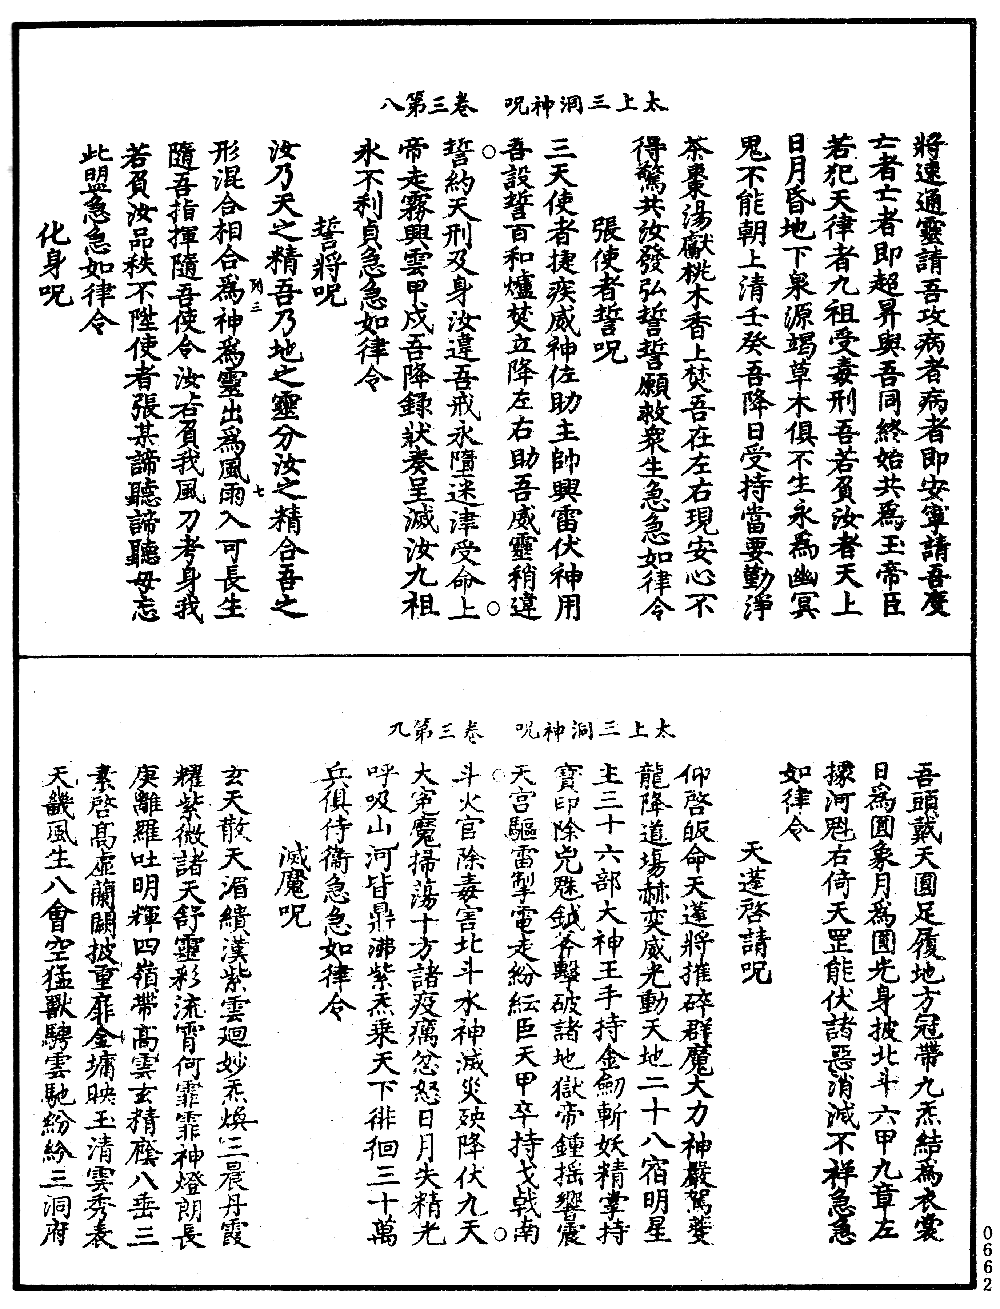 太上三洞神呪　卷三第八
將速通靈請吾攻病者病者即安寧請吾度
亡者亡者即超昇與吾同終始共爲玉帝臣
若犯天律者九祖受毒刑吾若負汝者天上
日月昏地下泉源竭草木俱不生永爲幽冥
鬼不能朝上清壬癸吾降日受持當要勤淨
茶棗湯獻桃木香上焚吾在左右現安心不
得驚共汝發弘誓誓願救衆生急急如律令
張使者誓呪
三天使者捷疾威神佐助主帥興雷伏神用
吾設誓百和爐焚立降左右助吾威靈稍違
誓約天刑及身汝違吾戒永墮迷津受命上
帝走霧興雲甲戌吾降錄狀奏呈滅汝九祖
永不利貞急急如律令
誓將呪
汝乃天之精吾乃地之靈分汝之精合吾之
形混合相合爲神爲靈出爲風雨入可長生
隨吾指揮隨吾使令汝若負我風刀考身我
若負汝品秩不陞使者張某諦聽諦聽毋忘
此盟急急如律令
化身呪
太上三洞神呪　卷三第九
吾頭戴天圓足履地方冠帶九炁結爲衣裳
日爲圓象月爲圓光身披北斗六甲九章左
據河魁右倚天罡能伏諸惡消滅不祥急急
如律令
天蓬啓請呪
仰啓皈命天蓬將摧碎群魔大力神嚴駕夔
龍降道場赫奕威光動天地二十八宿明星
主三十六部大神王手持金劒斬妖精掌持
寶印除兇殃鉞斧擊破諸地獄帝鍾搖響震
天宫驅雷掣電走紛紜巨天甲卒持戈戟南
斗火官除毒害北斗水神滅災殃降伏九天
大宛魔掃蕩十方諸疫癘忿怒日月失精光
呼吸山河皆鼎沸紫炁乘天下徘徊三十萬
兵俱侍衞急急如律令
滅魔呪
玄天散天湄績漢紫雲廻妙炁煥三晨丹霞
耀紫微諸天舒靈彩流霄何霏霏神燈朗長
庚離羅吐明輝四嶺帶高雲玄精廕八垂三
素啓高虛蘭闕披重扉金墉映玉清雲秀表
天畿風生八會空猛獸騁雲馳紛紛三洞府
0662